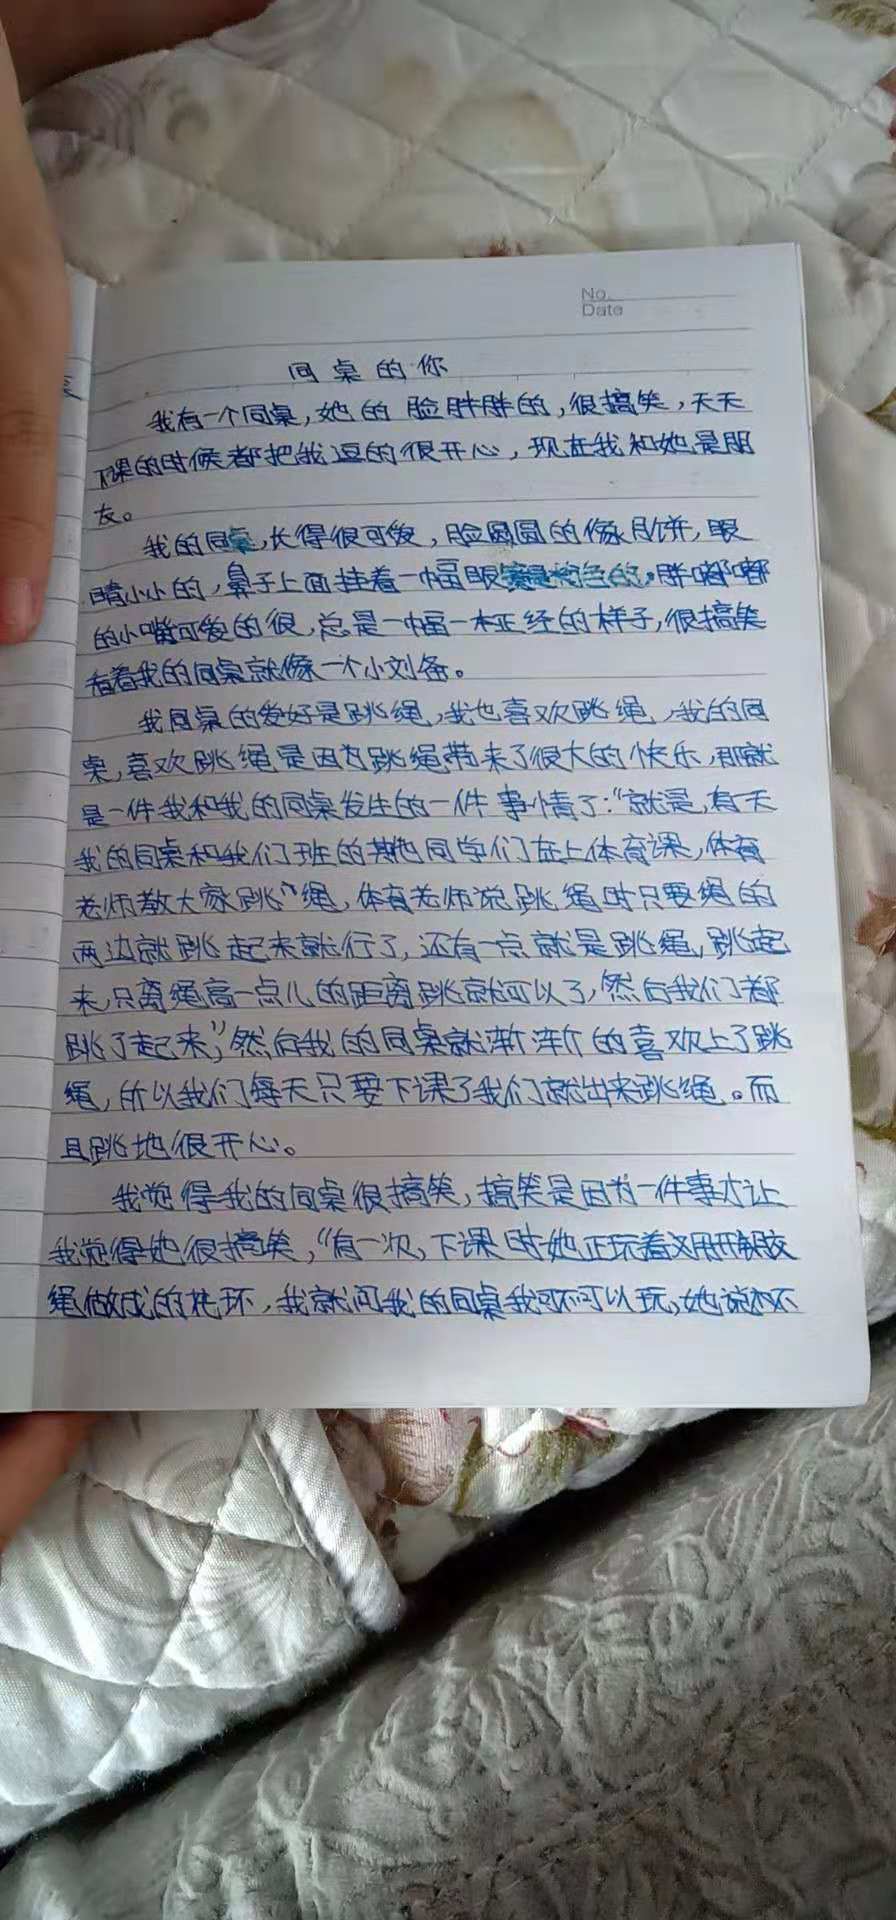 No.
Date
同桌的你
我有一个同桌,她的脸胖胖的,很搞笑,天天
下课的时候都把我逗的很开心,现在我和她是朋
友。
我的同桌,长得很可爱,脸圆圆的像月饼,眼
睛小小的,鼻子上面挂着一幅眼 胖嘟嘟
的小嘴可爱的很,总是一幅一本正经的样子,很搞笑
看着我的同桌就像一个小刘备。
我同桌的爱好是跳绳,我也喜欢跳绳,我的同
桌,喜欢跳绳是因为跳绳带来了很大的快乐,那就
是一件我和我的同桌发生的一件事情了:“就是,有天
我的同桌和我们班的其他同学们在上体育课,体育
老师教大家跳”绳,体育老师说跳绳时只要绳的
两边就跳起来就行了,还有一点就是跳绳,跳起
来,只离绳高一点儿的距离跳就可以了,然后我们都
跳了起来,”然后我的同桌就渐渐的喜欢上了跳
绳,所以我们每天只要下课了我们就出来跳绳。而
且跳地很开心。
我觉得我的同桌很搞笑,搞笑是因为一件事才让
我觉得她很搞笑,“有一次,下课时她正玩着用
绳做成的花环,我就问我的同桌我可不可以玩,她说